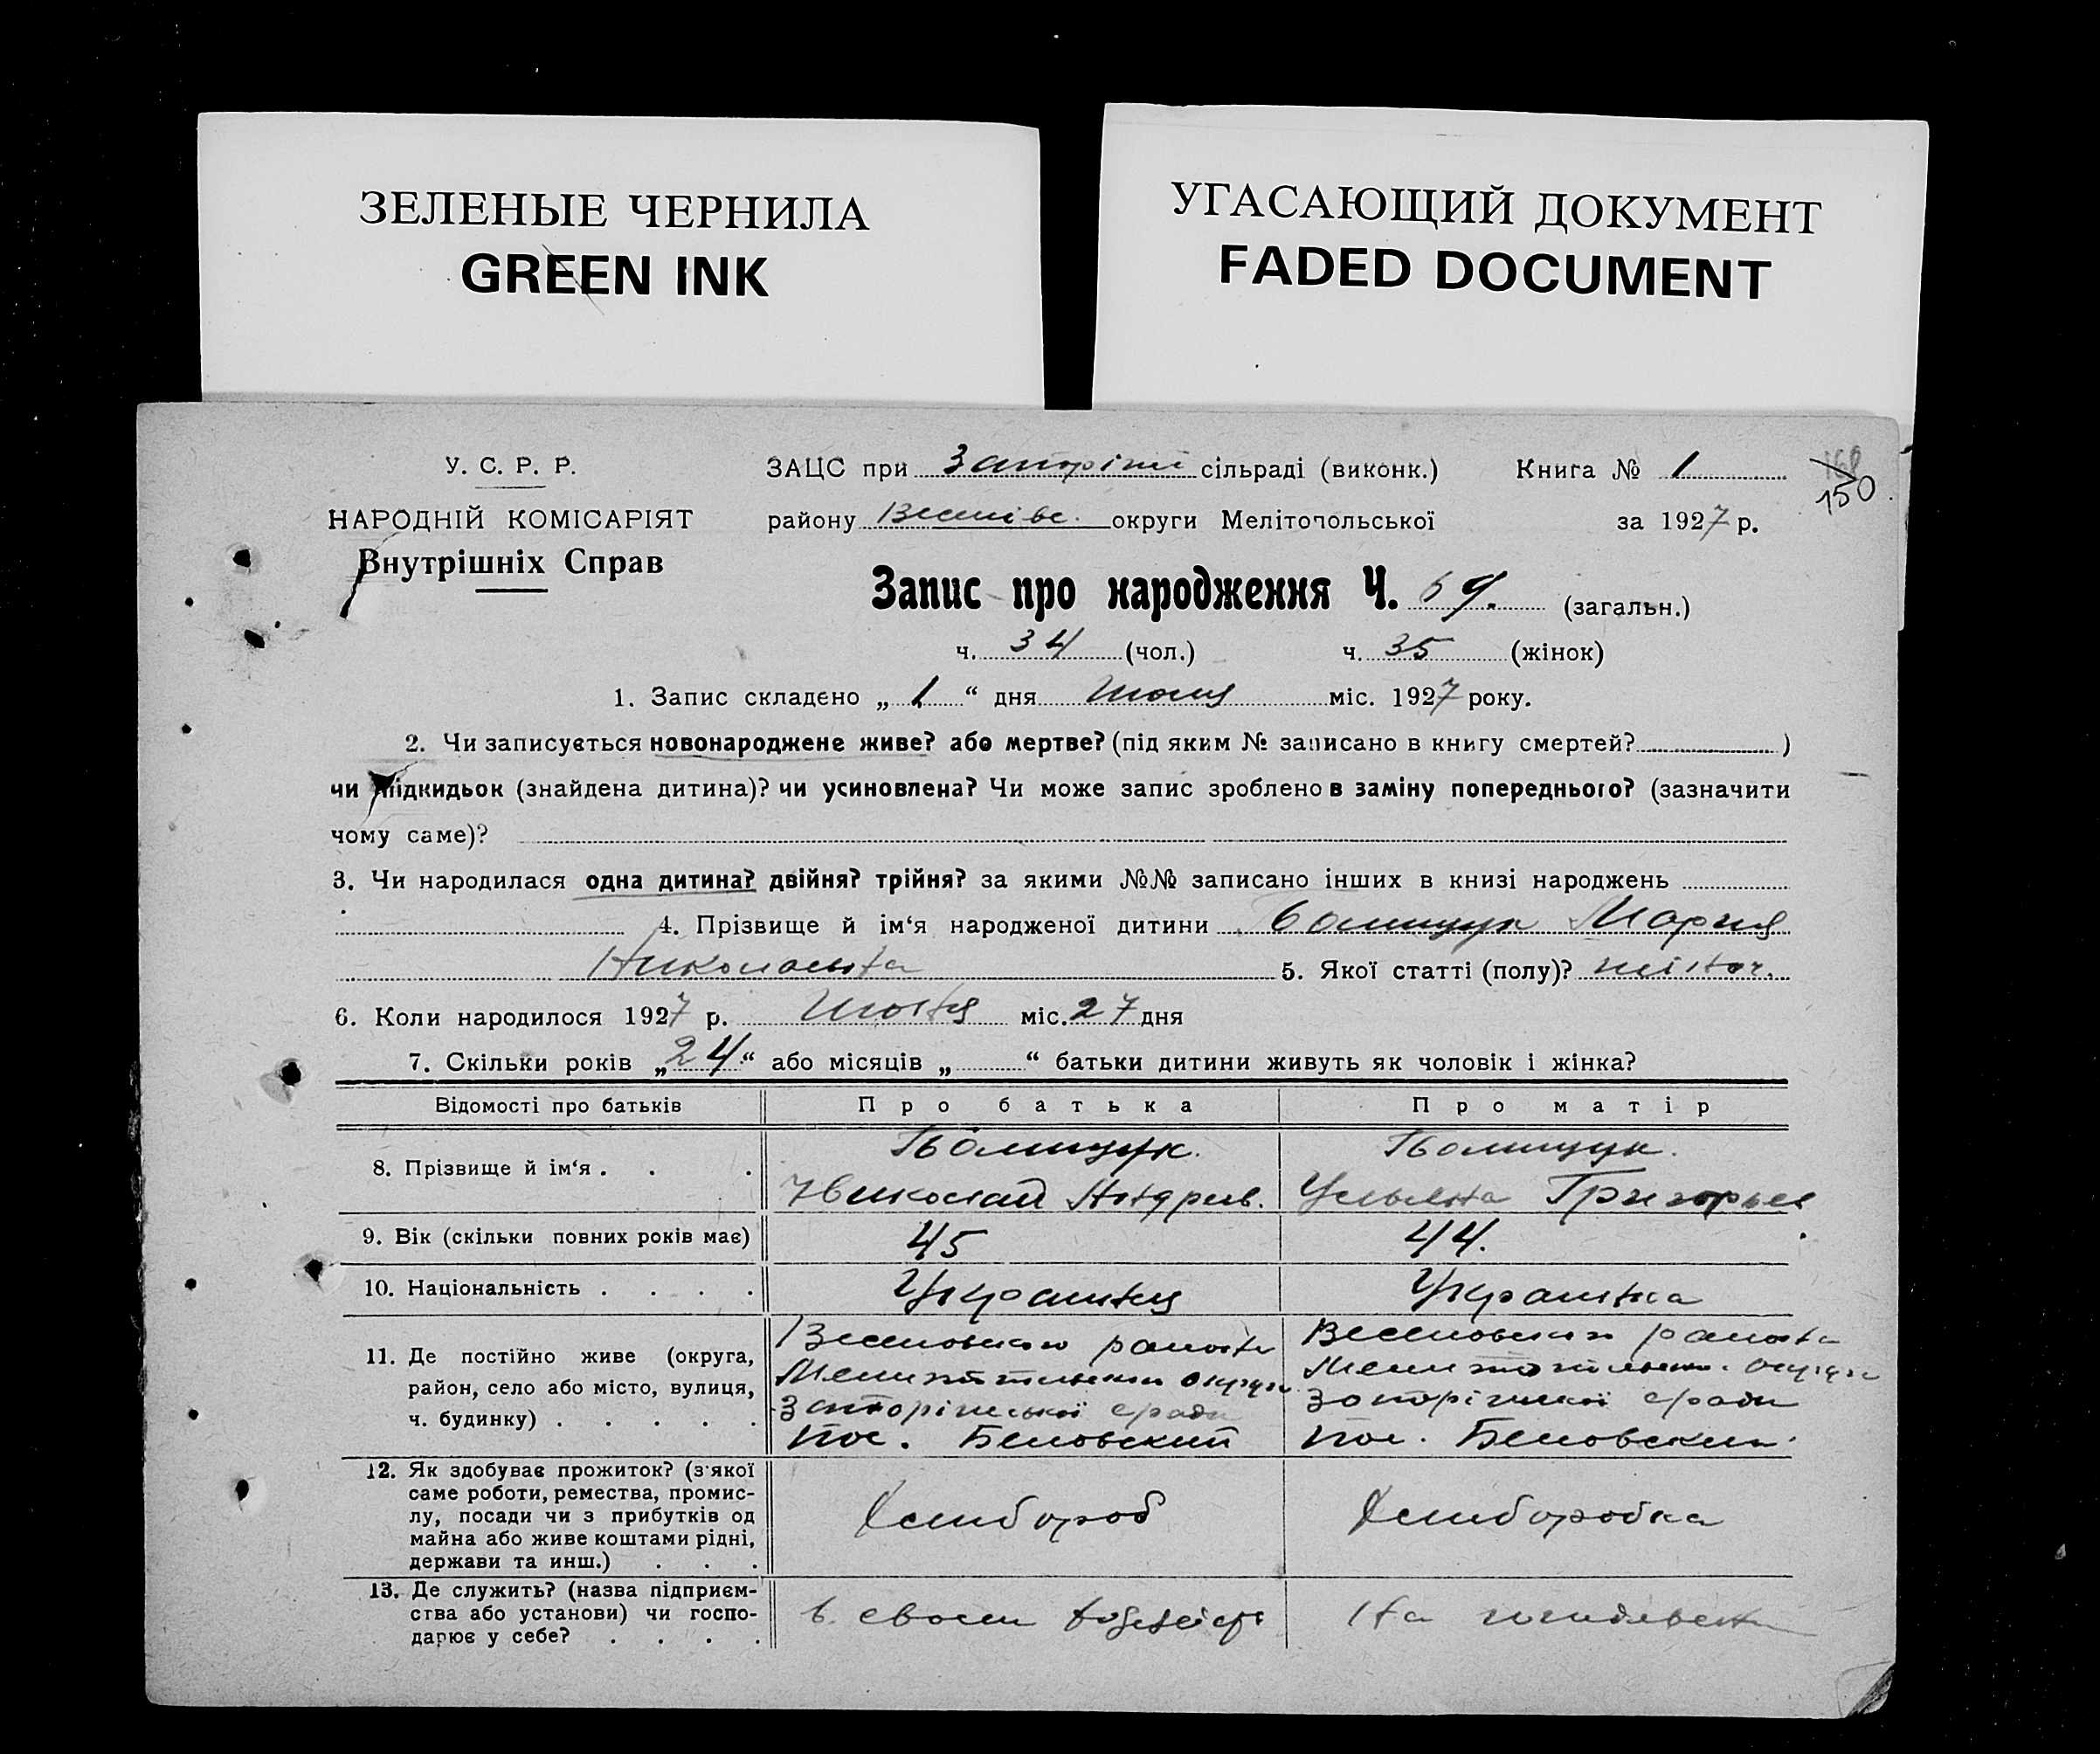 ЗЕЛЕНЫЕ ЧЕРНИЛА
GREEN INK
УГАСАЮЩИЙ ДОКУМЕНТ
FADED DOCUMENT
У. С. Р. Р.
НАРОДНІЙ КОМІСАРІЯТ
Внутрішніх Справ
ЗАЦС при сільраді (виконк.) Книга № 1
150
району округи Мелітопольської за 1927 р.
Запис про народження Ч. 69. (загальн.)
ч. 34 (чол.) ч. 35 (жінок)
1. Запис складено „ 1 “ дня Июля міс. 1927 року.
2. Чи записується новонароджене живе? або мертве? (під яким № записано в книгу смертей? )
чи підкидьок (знайдена дитина)? чи усиновлена? Чи може запис зроблено в заміну попереднього? (зазначити
чому саме)?
3. Чи народилася одна дитина? двійня? трійня? за якими №№ записано інших в книзі народжень
4. Прізвище й ім‘я народженої дитини Полищук Мария
Николаевна 5. Якої статті (полу)?
6. Коли народилося 1927 р. Июня міс. 27 дня
7. Скільки років „24“ або місяців „ “ батьки дитини живуть як чоловік і жінка?
Відомості про батьків Про батька Про матір
8. Прізвище й ім‘я . . . Полищук. Полищук.
Николай Андреев. Ульяна Григорьев
9. Вік (скільки повних років має) 45 44.
10. Національність . . . . Украинец Украинка
11. Де постійно живе (округа,
район, село або місто, вулиця,
ч. будинку) . . . . .
Веселовского района
Мелитопольской округи
Запорізької с/ради
пос. Беловский
Веселовского района
Мелитопольской округи
Запорізької с/ради
пос. Беловский
12. Як здобуває прожиток? (з'якої
саме роботи, ремества, промис-
лу, посади чи з прибутків од
майна або живе коштами рідні,
держави та инш.) . . .
Хлибороб Хлиборобка
13. Де служить? (назва підприєм-
ства або установи) чи госпо-
дарює у себе? . . . .
в своем На иждивении